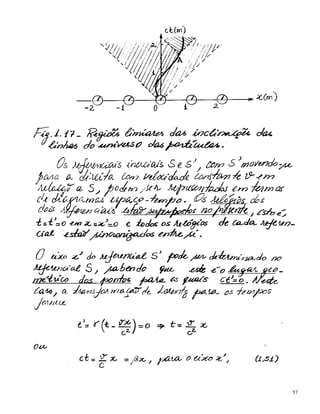 ct(m)
2
1
x(m)
-2 -1 0 1 2
Fig. 1.17 - Regiões limiares das inclinações das
linhas do universo das partículas.
Os referenciais inerciais S e S', com S' movendo-se
para a direita com velocidade constante v em
relação a S, podem ser representados em termos
de diagramas espaço-tempo. Os relógios dos
dois referenciais estão superpostos no presente, isto é,
t=t'=0 em x=x'=0 e todos os relógios de cada referen-
cial estão sincronizados entre si.
O eixo x' do referencial S' pode ser determinado no
referencial S, sabendo que este é o lugar geo-
métrico dos pontos para os quais ct'=0. Neste
caso, a transformação de Lorentz para os tempos
fornece
t' = γ(t - vx/c²) = 0 ⇒ t = v/c² x
ou
ct = v/c x = βx, para o eixo x', (1.51)
57